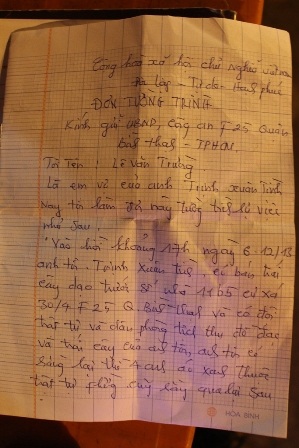 Cộng hoà xã hội chủ nghĩa việt nam
Độc lập - Tự do - Hạnh phúc
ĐƠN TƯỜNG TRÌNH
Kính gửi UBND, Công an F 25 Quận
Bình Thạnh - TPHCM.
Tôi Tên : Lê Văn Trường
Là em vợ của anh Trịnh xuân Tình
Nay tôi làm đơn này tường trình sự việc
như sau :
Vào hồi khoảng 17h ngày 6-12/13
anh tôi Trịnh Xuân Tình có bán trái
cây dạo trước số nhà 1165 cư xá
30/4 F 25 Q. Bình Thạnh và có đội
trật tự và dân phòng tịch thu đồ đạc
và trái cây của anh tôi, anh tôi có
lại thì 4 anh áo xanh thuộc
trật tự phường cùng qua lại sau
HOA BINH